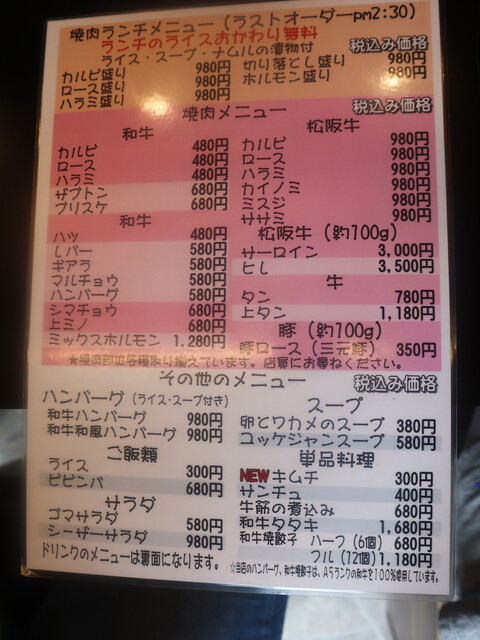 焼肉ランチメニュー（ラストオーダーpm2:30）
ランチのライスおかわり無料
ライス・スープ・ナムルの漬物付
税込み価格
カルビ盛り 980円
ロース盛り 980円
ハラミ盛り 980円
切り落とし盛り 980円
ホルモン盛り 980円
焼肉メニュー
税込み価格
和牛
カルビ 480円
ロース 480円
ハラミ 480円
ザブトン 680円
ブリスケ 680円
和牛
ハツ 480円
レバー 580円
ギアラ 580円
マルチョウ 580円
ハンバーグ 580円
シマチョウ 680円
上ミノ 680円
ミックスホルモン 1,280円
松阪牛
カルビ 980円
ロース 980円
ハラミ 980円
カイノミ 980円
ミスジ 980円
ササミ 980円
松阪牛（約100g）
サーロイン 3,000円
ヒレ 3,500円
牛
タン 780円
上タン 1,180円
豚（約100g）
豚ロース（三元豚） 350円
★焼肉部位各種取り揃えています。店員にお尋ねください。
その他のメニュー
税込み価格
ハンバーグ（ライス・スープ付き）
和牛ハンバーグ 980円
和牛和風ハンバーグ 980円
ご飯類
ライス 300円
ビビンバ 680円
サラダ
ゴマサラダ 580円
シーザーサラダ 980円
ドリンクのメニューは裏面になります。
スープ
卵とワカメのスープ 380円
ユッケジャンスープ 580円
単品料理
NEW キムチ 300円
サンチュ 400円
牛筋の煮込み 680円
和牛タタキ 1,680円
和牛焼餃子 ハーフ（6個） 680円
フル（12個）1,180円
☆当店のハンバーグ、和牛焼餃子は、A5ランクの和牛を100％使用しています。